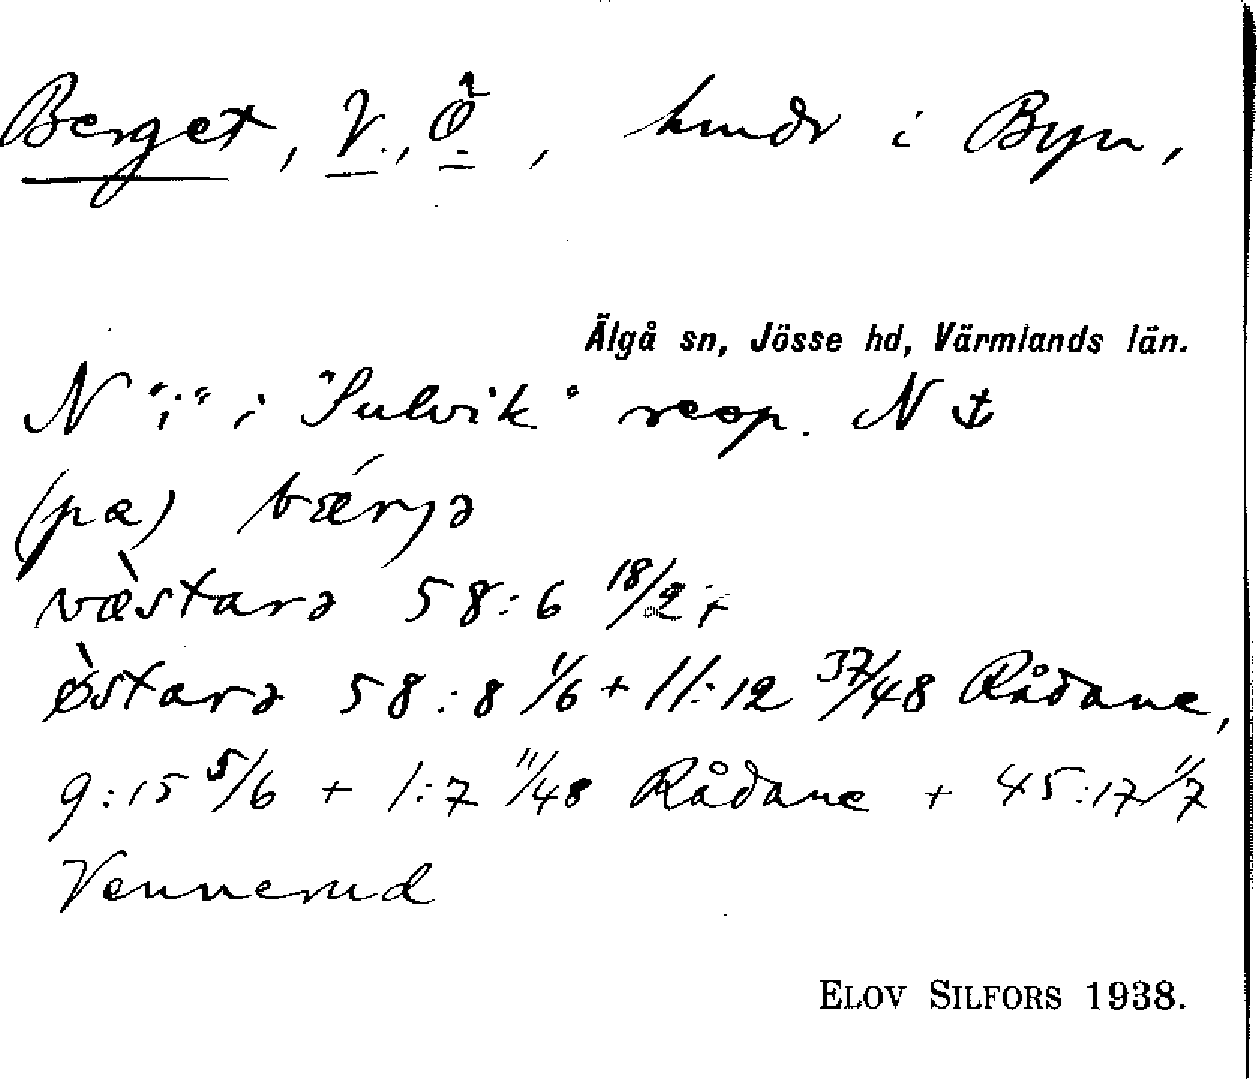 Berget, V., Ö, hmdr i Byn,
Älgå sn, Jösse hd, Värmlands län.
N "i" i "Sulvik" resp. N ⚓
(pa) bǽrjə
væ̀starə 58:6 18/2;
ø̀starə 58:8 1/6 + 11:12 37/48 Rådane,
9:15 5/6 + 1:7 11/48 Rådane + 45:17 1/7
Vennerud
ELOV SILFORS 1938.